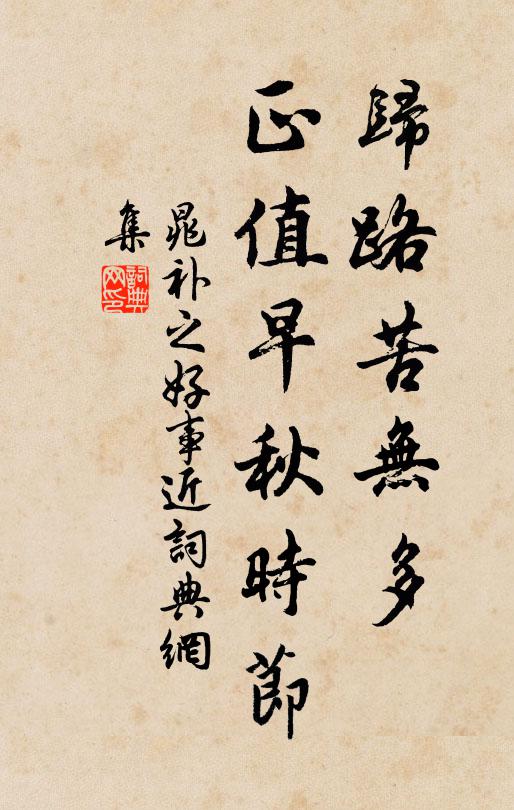 歸路苦無多
正值早秋時節
晁补之好事近詞典網
集
詞典
网印